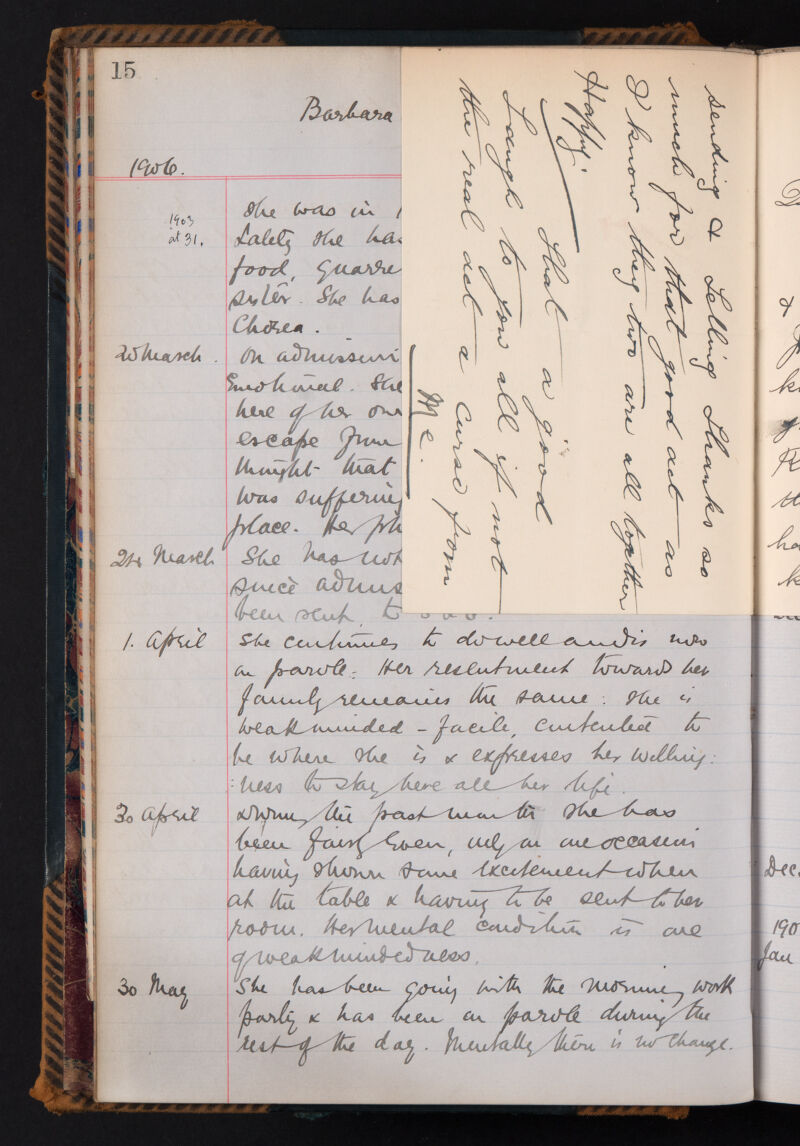 15
Barbara
1906.
1903
at 31.
She was in
Lately she has
food, quarre
sister. She has
Chorea.
20 March. On admission
Emotional. She
here of her own
escape from
thought that
was suffering
place. Her ph
21st March She has not
since admis
been sent to
1. April She continues to do well and is now
on parole. Her resentment towards her
family remains the same: she is
weakminded - facile, contented to
be where she is & expresses her willing:
:ness to stay here all her life.
30 April During the past month she has
been fairly even, only on one occasion
having shown some excitement when
at the table & having to be sent to her
room. Her mental condition is one
of weakmindedness.
30 May She has been going with the morning work
party & has been on parole during the
rest of the day. Mentally there is no change.
sending & Selling thanks so
much for that good act as
I know they two are all together
Happy
that a good
Laugh to you all if not
the real act a curse from
Me.
&
Dec.
190
Jan